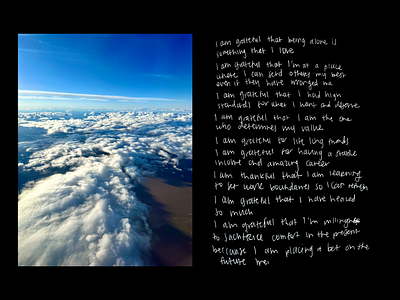 I am grateful that being alone is
something that I love
I am grateful that I'm at a place
where I can send others my best
even if they have wronged me
I am grateful that I hold high
standards for what I want and deserve
I am grateful that I am the one
who determines my value
I am grateful for life long friends
I am grateful for having a stable
income and amazing career
I am thankful that I am learning
to set work boundaries so I can refresh
I am grateful that I have healed
so much
I am grateful that I'm willing
to sacrifice comfort in the present
because I am placing a bet on the
future me.